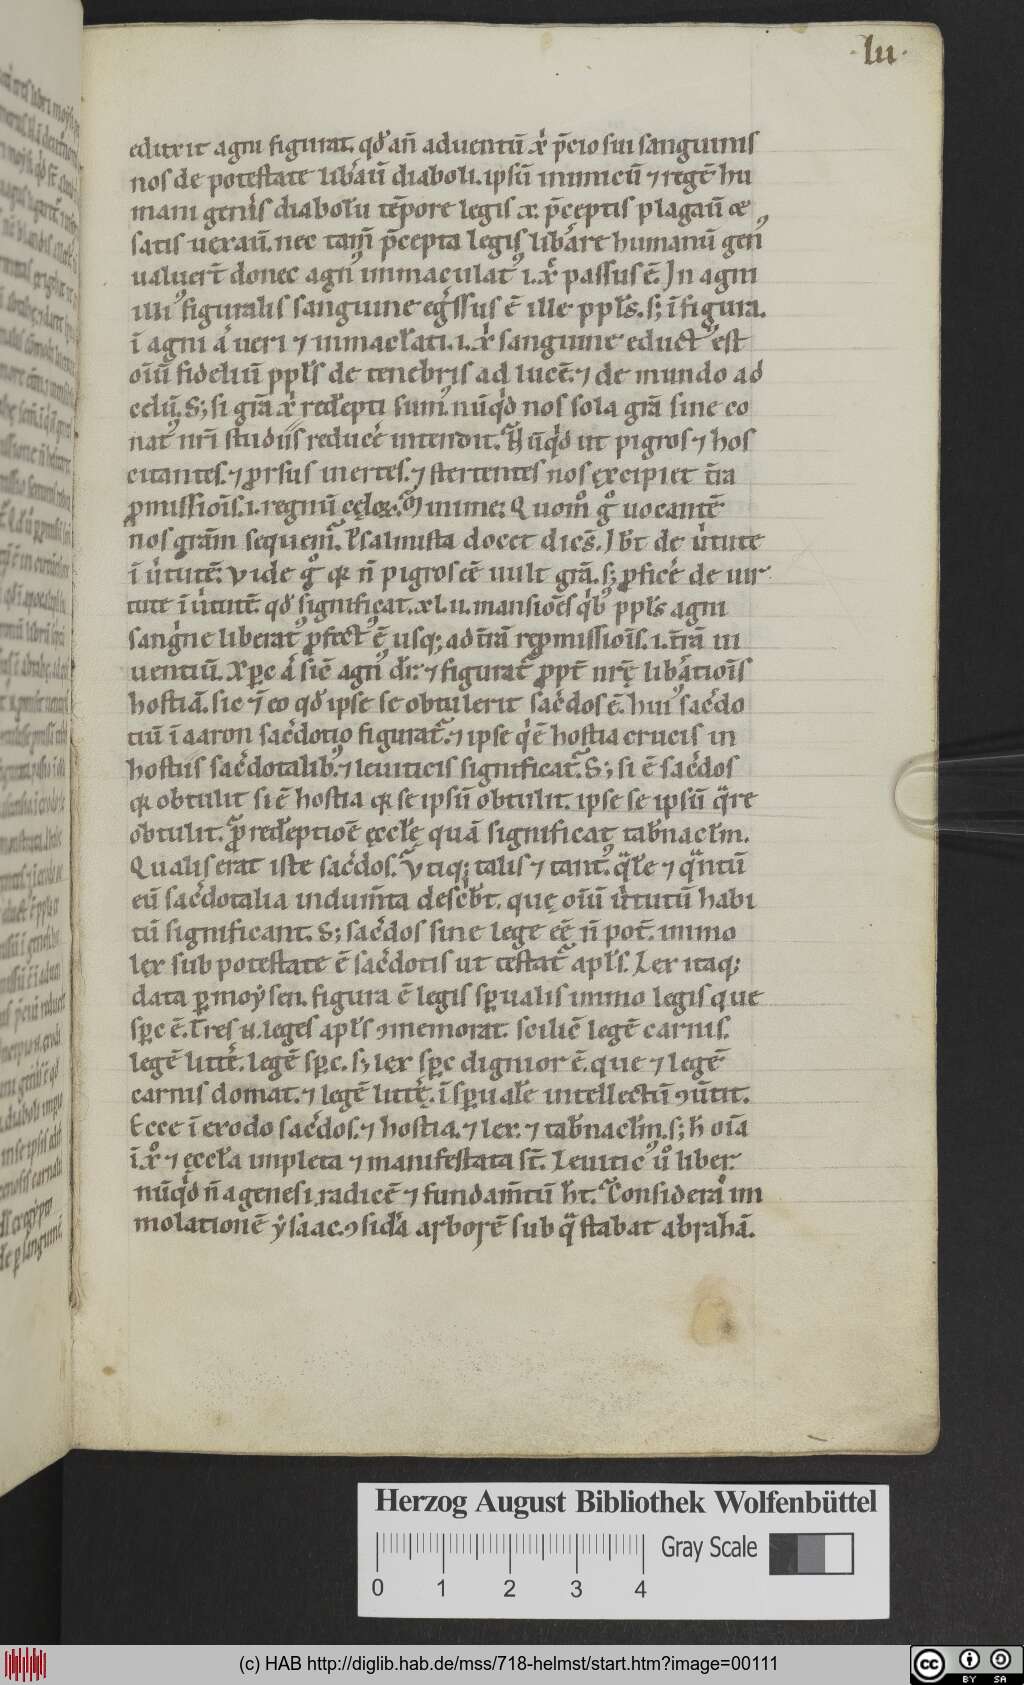 ·lu·
eduxit agni figurat. qđ an̄ aduentū xp̄i p̄cio sui sanguinis
nos de potestate lib̾auit diaboli. ipsū inimicū ⁊ regē hu
mani gen̾is diabolū tēpore legis x. p̄ceptis plagaū ce
satis uexaū. nec tam̄ p̄cepta legis lib̾are humanū genꝰ
ualuert̄ donec agnꝰ immaculatꝰ .i. xp̄c passus ē. In agni
illiꝰ figuralis sanguine eg̾ssus ē ille ppl̄s. s; ī figura.
ī agni a̾ ueri ⁊ inmacl̄ati .i. xp̄i sanguine eductꝰ est
oīū fideliū ppl̄s de tenebris ad lucē. ⁊ de mundo ad
celū. S; si gr̄a xp̄i redēpti sumꝰ. nūqͥd nos sola gr̄a sine co
natꝰ nr̄i studiis reduce̾ intendit. Nūqͥd ut pigros ⁊ hos
citantes. ⁊ ꝓrsus inertes. ⁊ stertentes nos excipiet t̄ra
ꝓmissiōis .i. regnū cęloꝝ. Minime. Quom̊ g̊ uocantē
nos gr̄am sequem̄. Psalmista docet dicēs. Ib̄t de ūtute
ī ūtutē. Vide g̊ qꝛ n̄ pigros ēē uult gr̄a. s; ꝓfice̾ de uir
tute ī ūtutē. qđ significat. xl.ii. mansiōes qͥbꝰ ppl̄s agni
sangͥne liberatꝰ ꝓfectꝰ ē usq; ad t̄rā reꝓmissiōis .i. t̄rā ui
uentiū. Xp̄c a̾ sic̄ agnꝰ dr̄. ⁊ figurat̄ ꝓpt̄ nr̄ę lib̾atiōis
hostiā. sic ⁊ ī eo qđ ipse se obtulerit sac̾dos ē. huiꝰ sac̾do
tiū ī aaron sac̾dotio figurat̄. ⁊ ipse qͥ ē hostia crucis in
hostiis sac̾dotalibꝰ. ⁊ leuiticis significat̄. S; si ē sac̾dos
qꝛ obtulit si ē hostia qꝛ se ipsū obtulit. ipse se ipsū qͣre
obtulit. ꝓ redēptiōe ęccl̄ę quā significat tab̄nacl̄m.
Qualis erat iste sac̾dos. Vtiq; talis ⁊ tantꝰ. qͣle ⁊ qͣntū
eū sac̾dotalia indum̄ta descb̄t. quę oīū ūtutū habi
tū significant. S; sac̾dos sine lege ēē n̄ pot̄. immo
lex sub potestate ē sac̾dotis ut testat̄ apl̄s. Lex itaq;
data ꝑ moẏsen. figura ē legis sp̄ualis immo legis que
sp̄c ē. Tres .n. leges apl̄s ꝯmemorat. scilic̄ legē carnis.
legē litt̄e. legē sp̄c. s; lex sp̄c dignior ē. que ⁊ legē
carnis domat. ⁊ legē litt̄ę. ī sp̄uale intellectū ꝯūtit.
Ecce ī exodo sac̾dos. ⁊ hostia. ⁊ lex. ⁊ tab̄nacl̄m. s; h̄ oīa
ī xp̄o ⁊ ęccl̄a impleta ⁊ manifestata st̄. Leuiticꝰ u̾o liber.
nūqͥd n̄ a genesi radicē ⁊ fundam̄tū h̄t. Considera̾ im
molationē ẏsaac. ꝯsid̾a arborē sub qͣ stabat abrahā.
Herzog August Bibliothek Wolfenbüttel
Gray Scale
0 1 2 3 4
(c) HAB http://diglib.hab.de/mss/718-helmst/start.htm?image=00111
cc BY SA